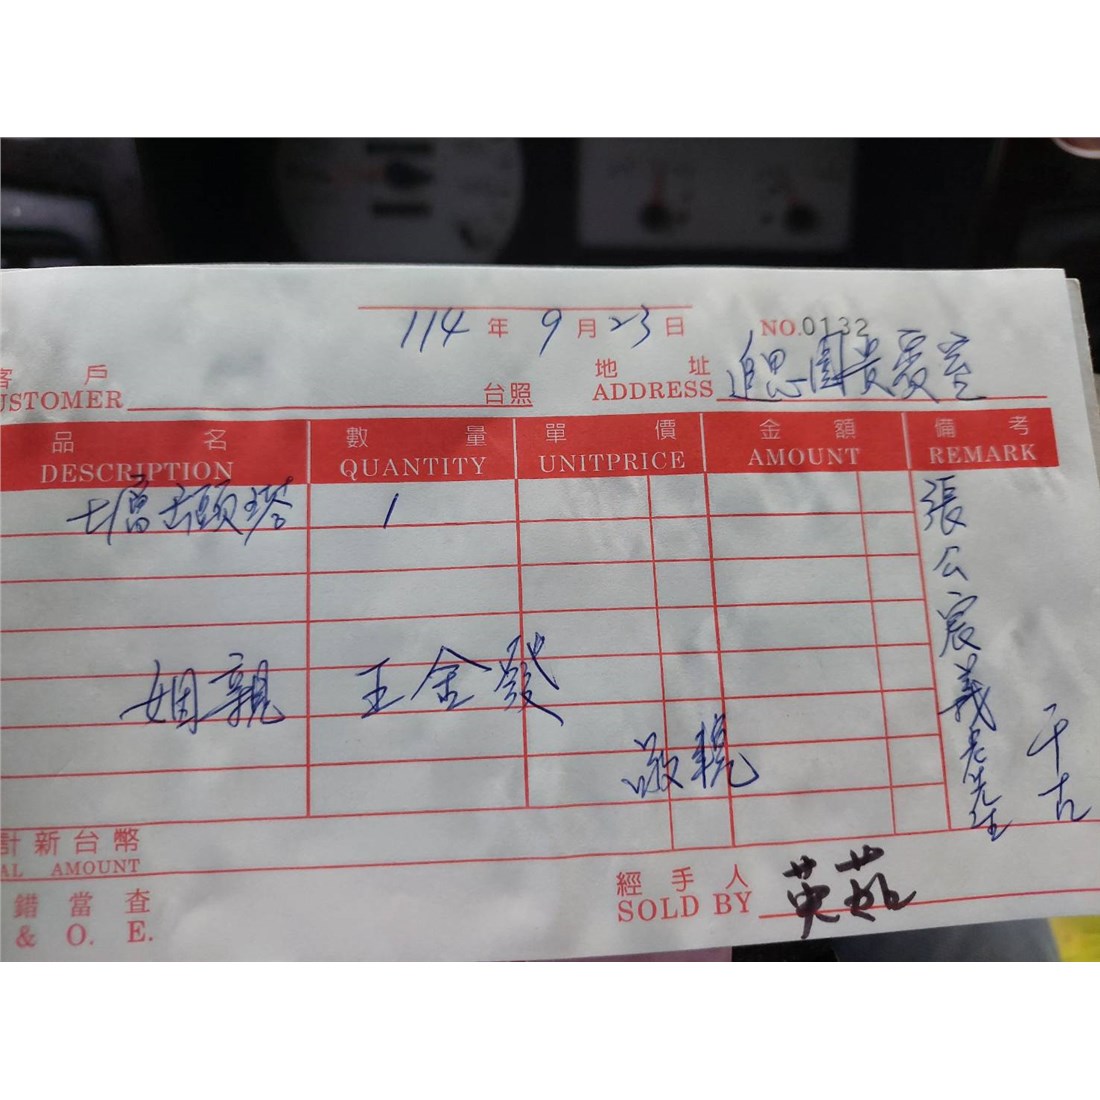 114年9月23日 NO.0132
客戶 台照 地址 追思園貴賓室
CUSTOMER ADDRESS
品名 數量 單價 金額 備考
DESCRIPTION QUANTITY UNITPRICE AMOUNT REMARK
罐頭塔 1
張公宸義老先生
千古
姻親 王金發
敬輓
計新台幣
AL AMOUNT
錯當查 經手人 英茹
& O. E. SOLD BY